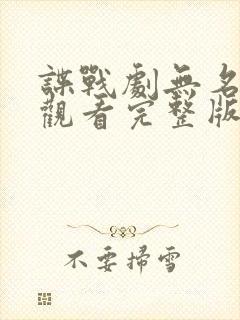 諜戰劇無名
觀看完整版
不要掃雪